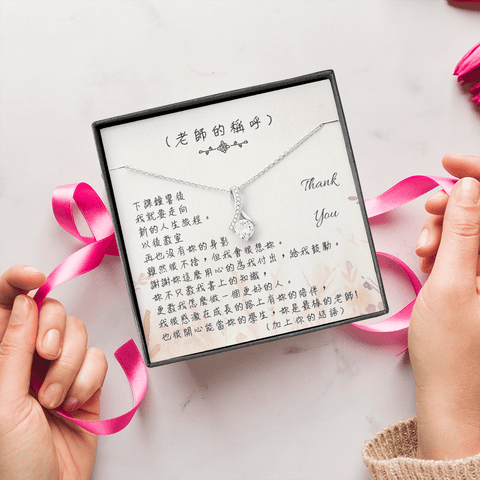 (老師的稱呼)
Thank
You
下課鐘響後
我就要走向
新的人生旅程。
以後教室
再也沒有妳的身影
雖然很不捨,但我會很想妳。
謝謝妳這麼用心的為我付出,給我鼓勵。
妳不只教我書上的知識,
更教我怎麼做一個更好的人。
我很感激在成長的路上有妳的陪伴,
也很開心能當妳的學生,妳是最棒的老師!
(加上你的結語)